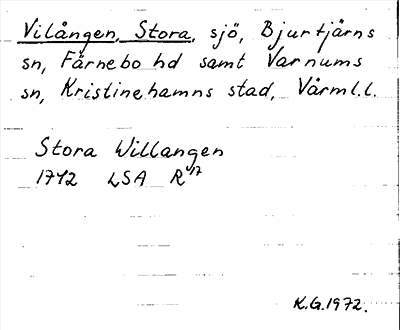 Vilången, Stora, sjö, Bjurtjärns
sn, Färnebo hd samt Varnums
sn, Kristinehamns stad, Värml.l.
Stora Willangen
1742 LSA R17
K.G.1972.